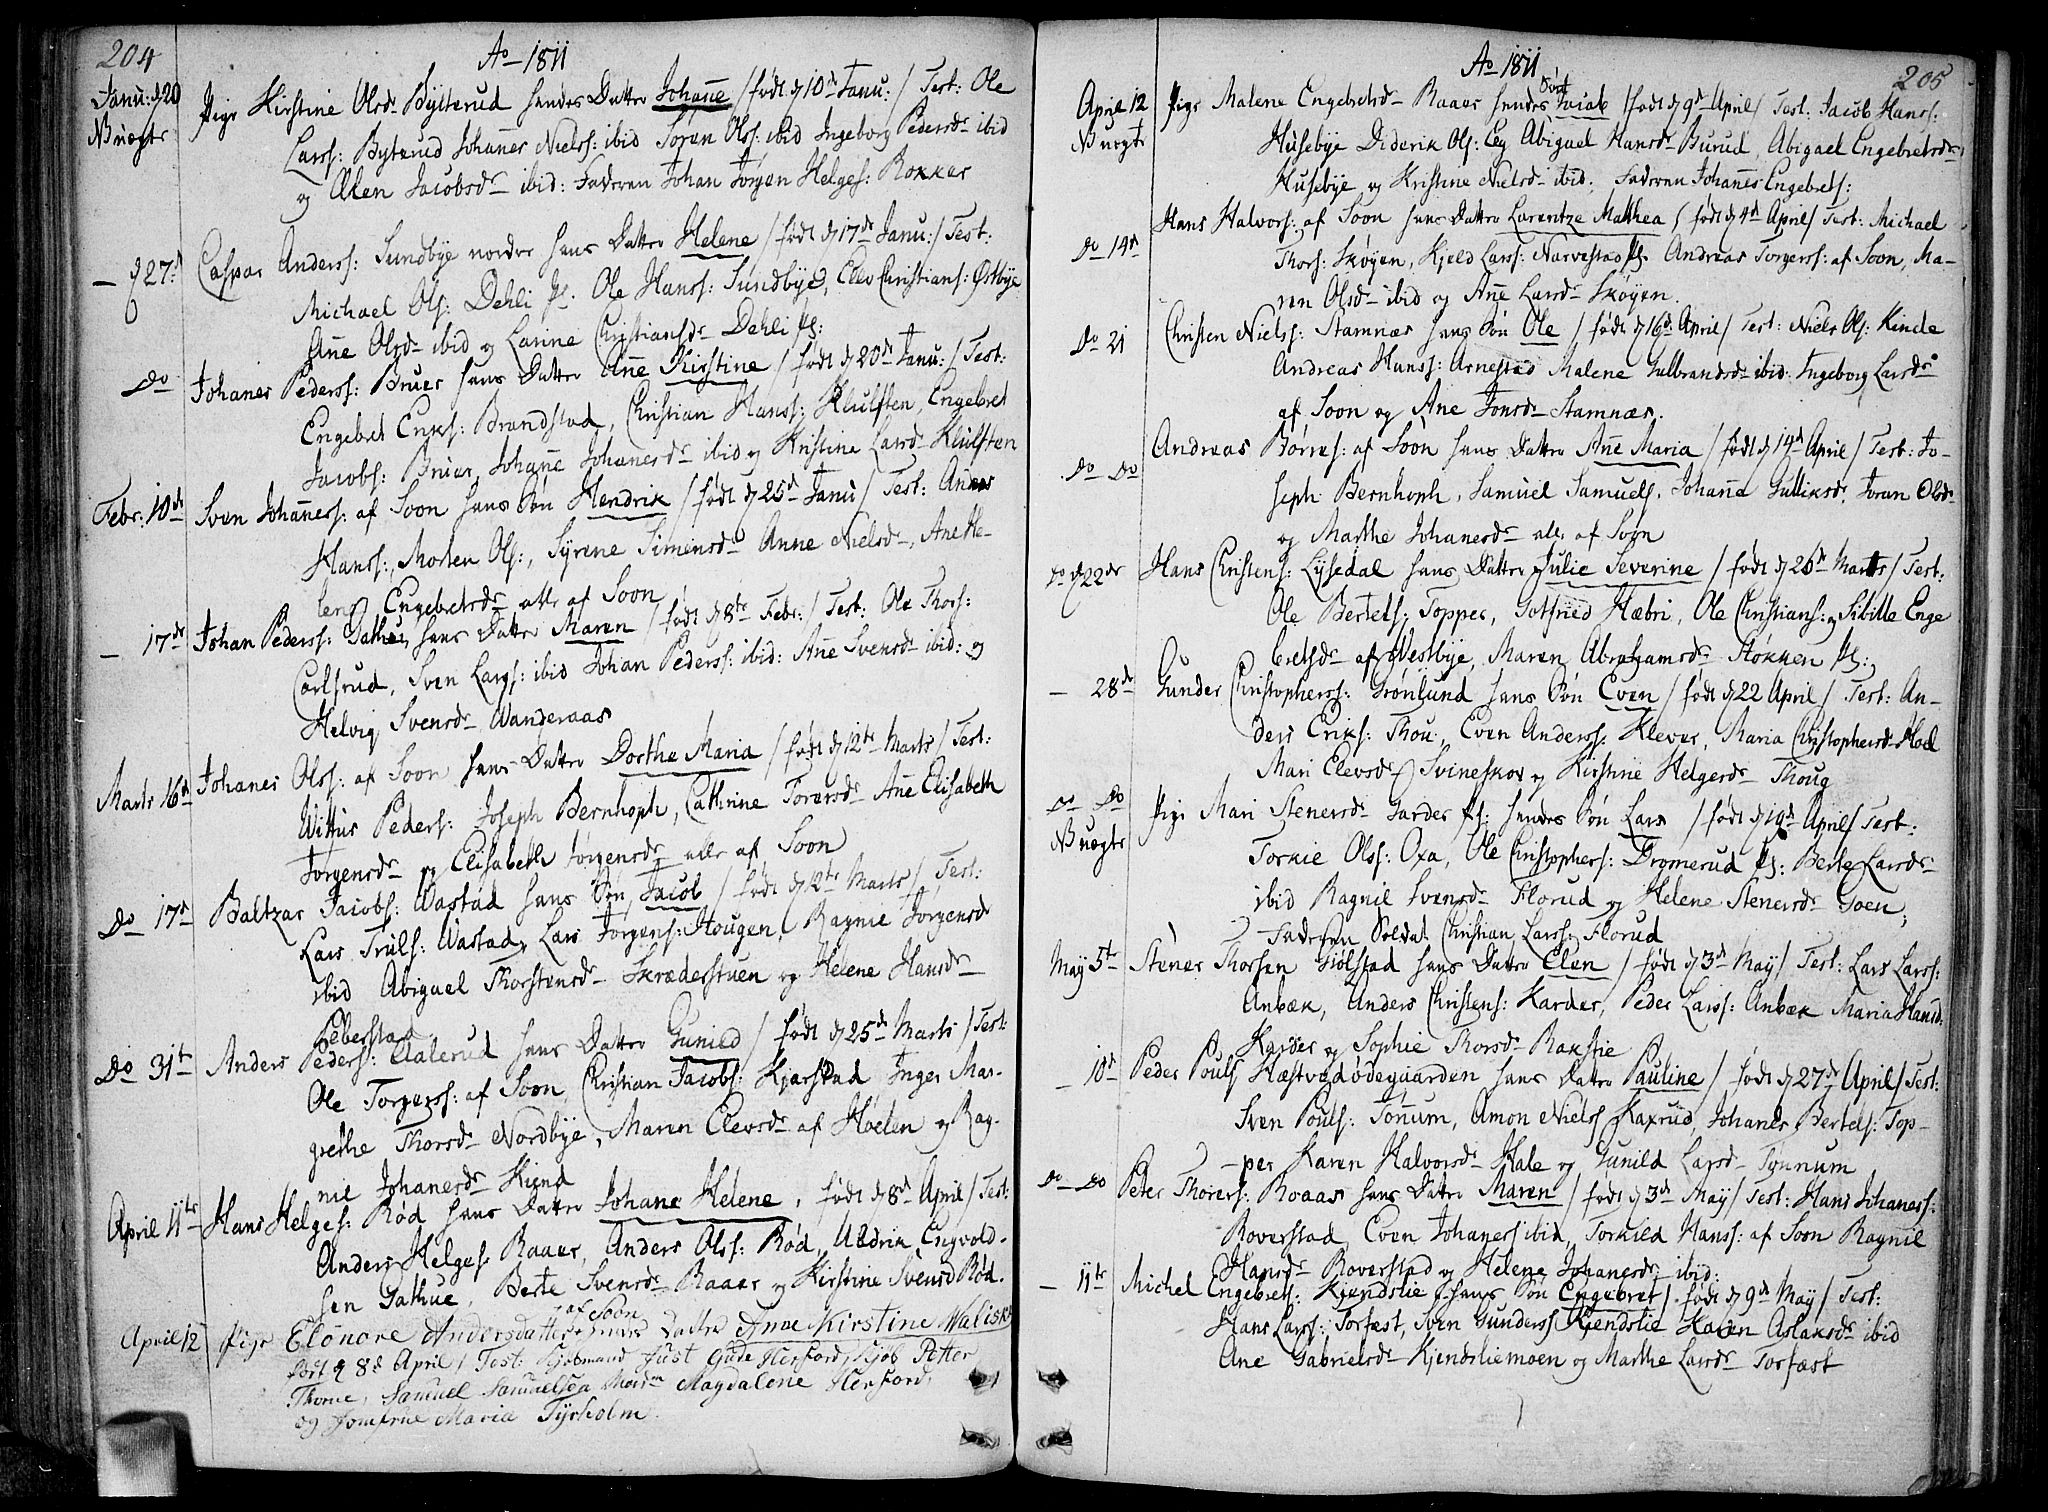 204
Ao 1811
Janu: d 20 Pige Kirstine Olsd. Bytterud hendes Datter Johanne / født d 10de Janu: / Test: Ole
N B uægte Larss: Byterud Johannes Nielss: ibid Soren Ols: ibid Ingeborg Pedersd. ibid
og Ellen Jacobsd. ibid: Faderen Johan Jørgen Helges: Rokker
— d 27de Caspar Anderss: Sundbye nordre hans Datter Helene / født d 17de Janu: / Test:
Michael Ols: Dehli Ole Hanss: Sundbye, Elev Christians: Østbye
Anne Olsd. ibid og Larine Christiansd. Dehli
Do Johanes Pederss: Bruer hans Datter Anne Kirstine / født d 20de Janu: / Test:
Engebret Eriks: Brandstad, Christian Hanss: Klulften, Engebret
Jacobs: Bruer, Johanne Johanesd. ibid og Kristine Larsd. Klulften
Febr: 10de Sven Johanness: af Soon hans Søn Hendrik / født d 25d Janu / Test: Anders
Hanss:, Morten Ols:, Syrene Simensd. Anne Nielsd., Ane He-
lene Engebretsd. alle af Soon
— 17de Johan Pederss: Gathue hans Datter Maren / født d 8te Febr: / Test: Ole Thors:
Carlsrud, Sven Larss: ibid Johan Pederss: ibid: Anne Svensd. ibid: og
Helvig Svensd. Wanderaas
Marts 16d Johanes Olss: af Soon hans Datter Dorthe Maria / født d 12te Marts / Test:
Wittus Peders: Joseph Bernhoph, Cathrine Torersd. Ane Elisabeth
Jorgensd. og Elisabeth Jorgensd. alle af Soon
Do 17d Baltzar Jacobs: Wastad hans Søn Jacob / født d 12te Marts / Test:
Lars Truls: Wastad, Lars Jorgens: Hougen, Ragnie Jorgensd
ibid Abigael Thorstensd. Skræderstuen og Helene Hansd.
Peberstad
Do 31te Anders Peders: Aalerud hans Datter Gunild / født d 25de Marts / Test:
Ole Torgerss: af Soon, Christian Jacobs: Kjærstad Inger Mar-
grethe Thorsd. Nordbye, Maren Elevsd. af Hølen og Rag-
nie Johanersd. Kiend
April 11te Hans Helges: Rød hans Datter Johane Helene, født d 8d April / Test:
Anders Helges: Raaer, Anders Olss: Rød, Uldrik Engvold-
sen Gathue, Berte Svensd. Raaer og Kirstine Svensd Rød.
April 12 Pige Elonore Andersdatter af Soon hendes Datter Anne Kirstine Walise
født d 8d April / Test: Kjøbmand Just Gude Herford, Kjøb Petter
Thorne, Samuel Samuelsen Mad.m Magdalene Herford,
og Jomfrue Maria Tyrholm.
205
Ao 1811
April 12 Pige Malene Engebretsd. Raaer hendes Dött / født d 9d April / Test: Jacob Hans:
N B uægte Husebye Diderik Ols: Eeg Abigael Hansd. Burud, Abigael Engebretsd.
Husebye og Kristine Nielsd. ibid; Faderen Johanes Engebrets:
Do 14d Hans Halvors: af Soon hans Datter Larentze Mathea / født d 4d April / Test: Michael
Thors: Skøyen, Kjeld Larss: Narvestad Andreas Torgerss: af Soon, Ma-
ren Olsd. ibid og Ane Larsd. Skøyen.
Do 21 Christen Niels: Stamnæs hans Søn Ole / født d 16d April / Test: Niels Ols: Kinde
Andreas Hanss: Arnestad Malene Gulbrandsd. ibid: Ingeborg Larsd.
af Soon og Ane Jonsd. Stamnæs.
Do Do Andreas Børres: af Soon hans Datter Ane Maria / født d 14d April / Test: Jo-
seph Bernhoph, Samuel Samuels, Johana Gulliksd. Joran Olsd.
og Marthe Johanersd. alle af Soon
Do d 22de Hans Christens: Lysedal hans Datter Julie Severine / født d 26d Marts / Test:
Ole Bertels: Topper, Gotfried Hæbri, Ole Christians: og Sibille Enge
bretsd. af Westbye, Maren Abrahamsd. Stokken
— 28de Gunder Christophers: Grønlund hans Søn Even / født d 22 April / Test: An-
ders Eriks: Thou, Even Anderss: Klever, Maria Christophersd. Hoel
Mari Elevsd. Svineskov og Kirstine Helgersd. Thoug
Do Do Pige Mari Stenersd. Garder hendes Søn Lars / født d 19d April / Test:
N B uægte Torkie Olss: Oxa, Ole Christophers: Dromerud Berte Larsd.
ibid Ragnil Svensd. Florud og Helene Stenersd. Goen;
Faderen Soldat Christian Larss: Florud
May 5te Stener Thorsen Giølstad hans Datter Elen / født d 3d May / Test: Lars Larss:
Anbæk, Anders Christens: Karder, Peder Larss: Anbæk Maria Hansd:
Karder og Sophie Thorsd. Rakstie
— 10d Peder Pouls Hæstvedødegaarden hans Datter Pauline / født d 27de April / Test:
Sven Pouls: Tonnum, Amon Niels Kaxrud, Johanes Bertels: Top-
-per Karen Halvorsd. Hale og Gunild Larsd. Tynnum
Do Do Peter Thorers: Roaas hans Datter Maren / født d 3d May / Test: Hans Johaness:
Roverstad, Even Johanes: ibid, Torkild Hanss: af Soon Ragnil
Hansd. Roverstad og Helene Johanesd. ibid:
— 11te Michel Engebrets: Kjendslie hans Søn Engebret / født d 9d May / Test:
Hans Larss: Torfæst, Sven Gunderss Kjendstie Karen Aslaksd. ibid
Ane Gabrielsd. Kjendsliemoen og Marthe Larsd. Torfæst